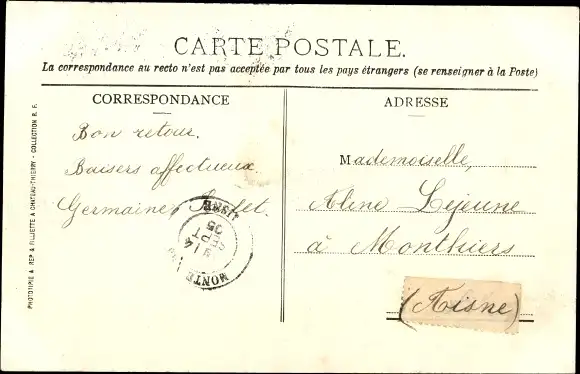 CARTE POSTALE.
La correspondance au recto n'est pas acceptée par tous les pays étrangers (se renseigner à la Poste)
CORRESPONDANCE
Bon retour.
Baisers affectueux.
Germaine
ADRESSE
Mademoiselle,
Aline Lejeune
à Monthiers
(Aisne)
AISNE
14
05
PHOTOTYPIE A. REP & FILLIETTE A CHATEAU-THIERRY - COLLECTION R. F.